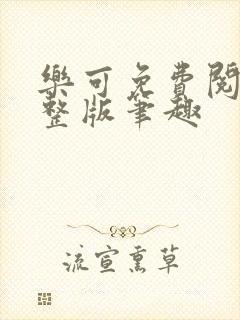 樂可免費閱
整版筆趣
流宣熏草